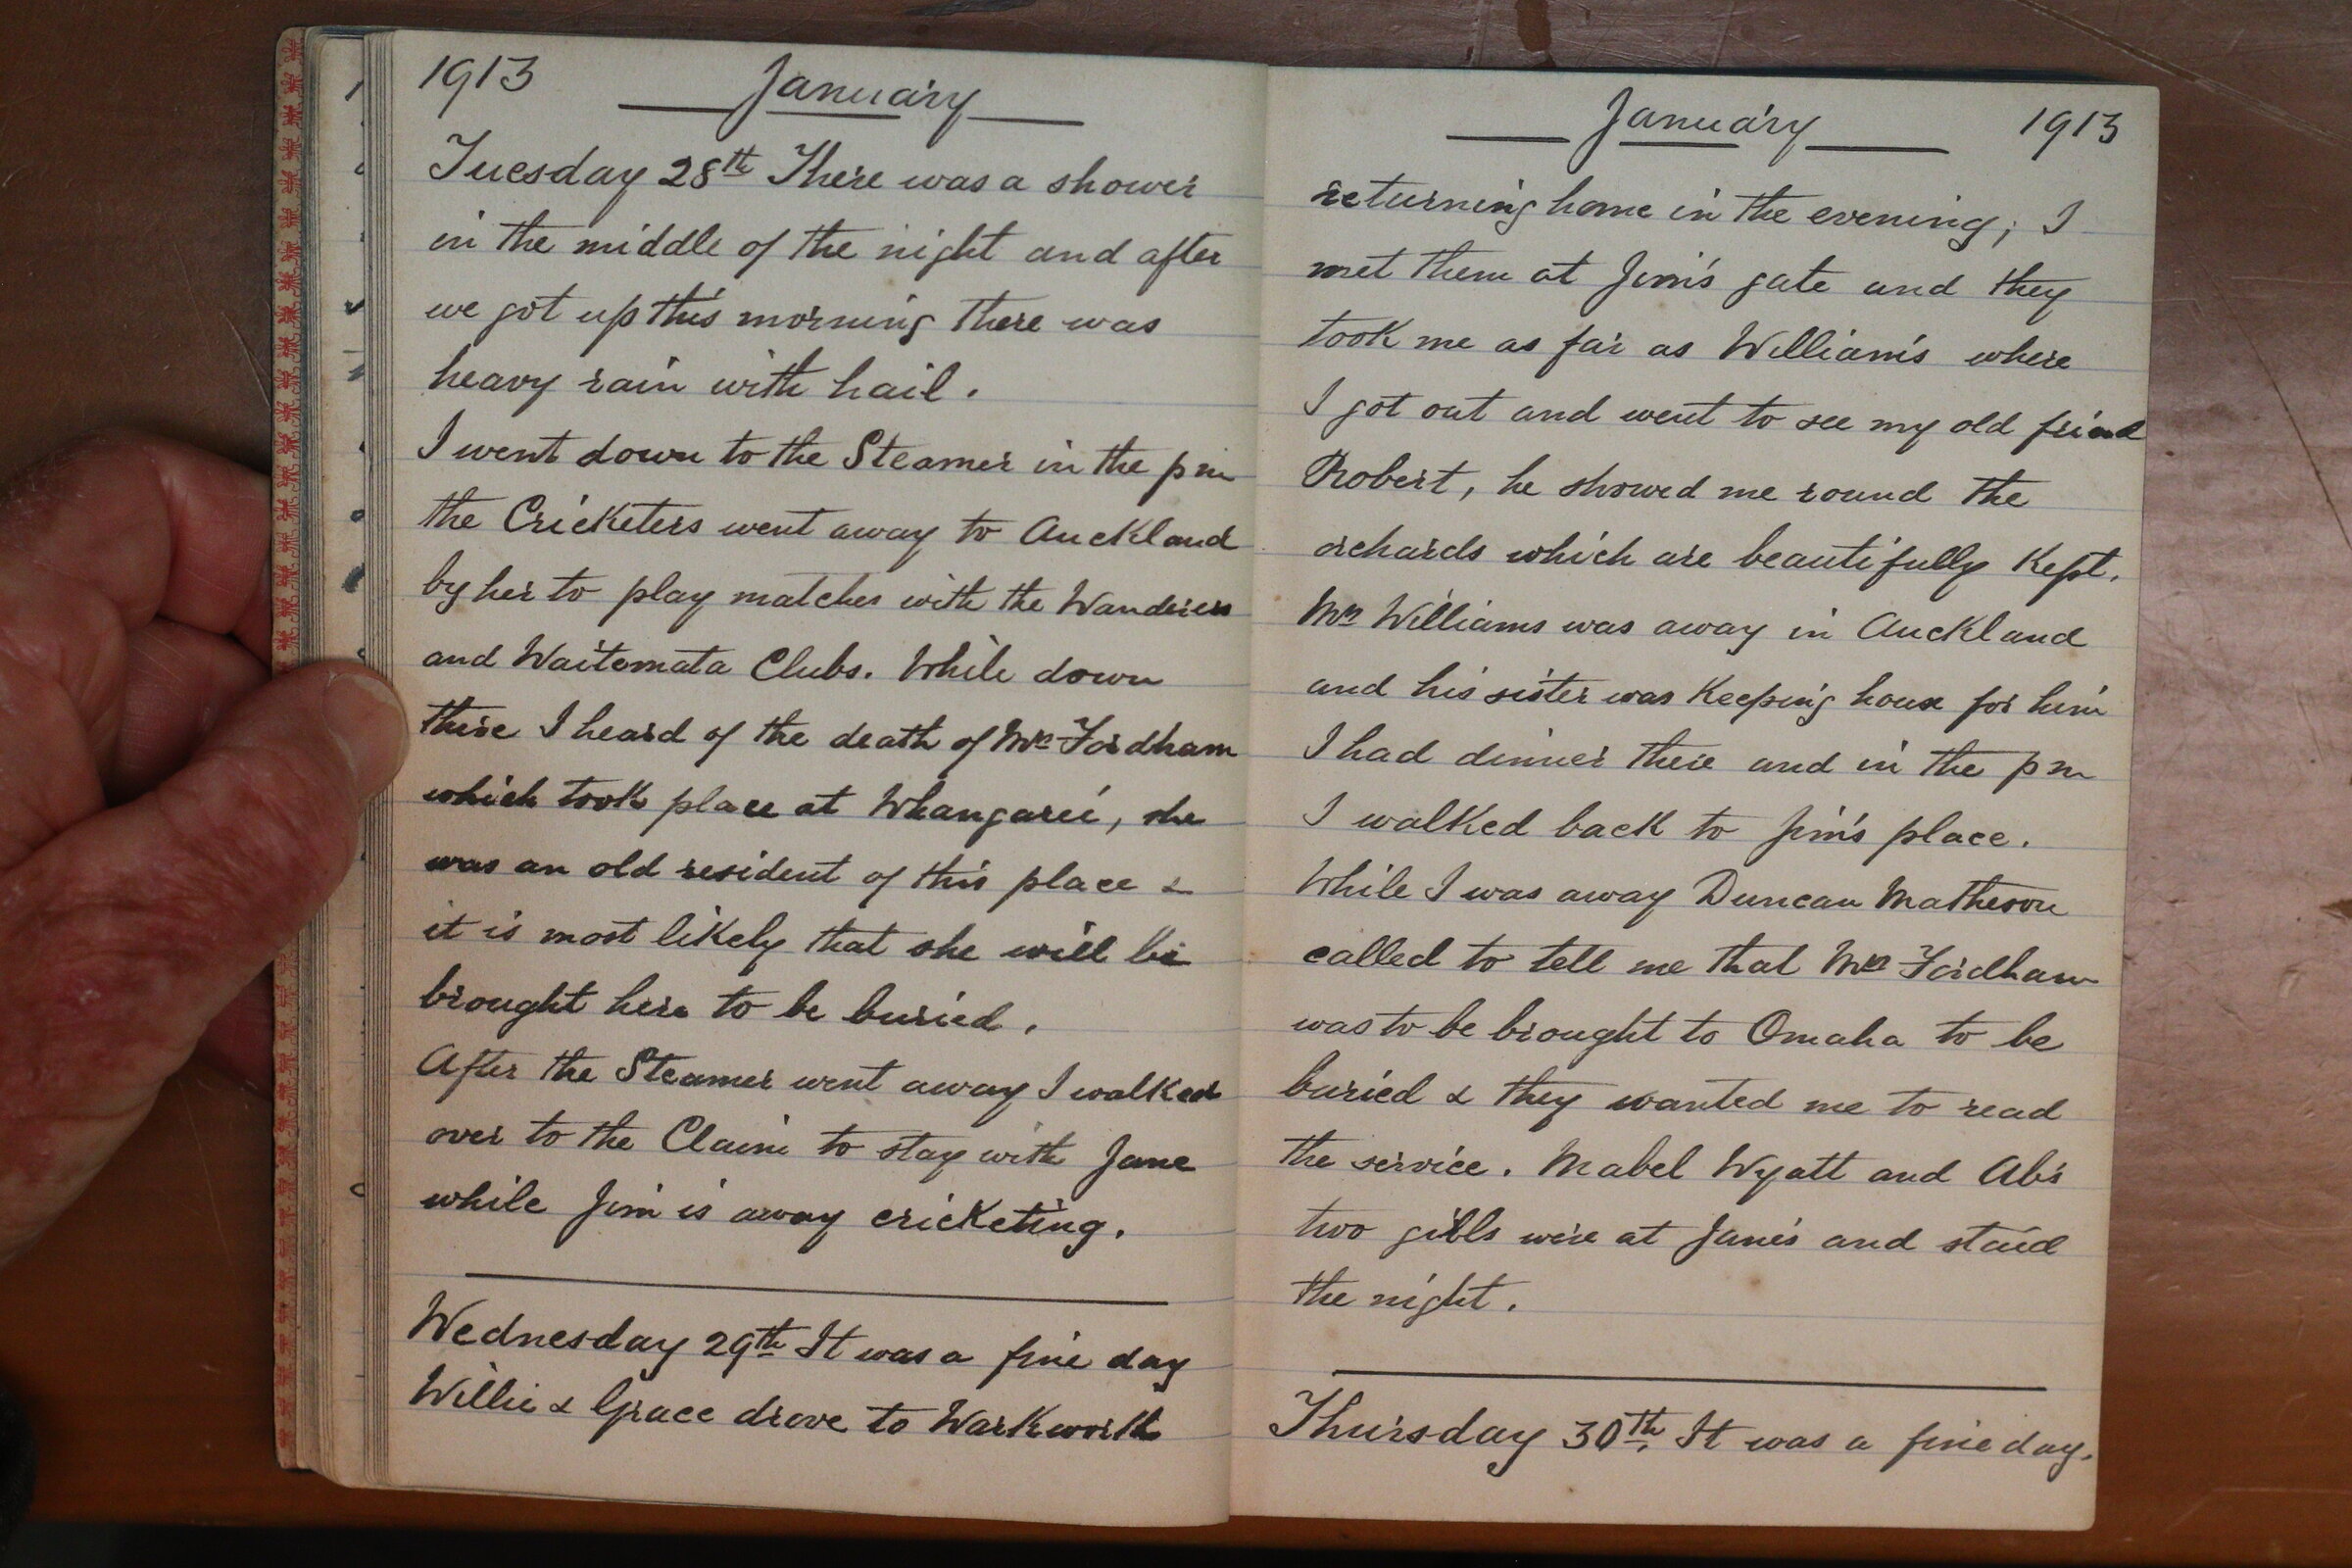 1913 January
Tuesday 28th There was a shower
in the middle of the night and after
we got up this morning there was
heavy rain with hail.
I went down to the Steamer in the pm
the Cricketers went away to Auckland
by her to play matches with the Wanderers
and Waitemata Clubs. While down
there I heard of the death of Mrs Fordham
which took place at Whangarei, she
was an old resident of this place &
it is most likely that she will be
brought here to be buried.
After the Steamer went away I walked
over to the Claim to stay with Jane
while Jim is away cricketing.
Wednesday 29th It was a fine day
Willie & Grace drove to Warkworth
January 1913
returning home in the evening; I
met them at Jim's gate and they
took me as far as William's where
I got out and went to see my old friend
Robert, he showed me round the
orchards which are beautifully kept.
Mrs Williams was away in Auckland
and his sister was keeping house for him
I had dinner there and in the pm
I walked back to Jim's place.
While I was away Duncan Matheson
called to tell me that Mrs Fordham
was to be brought to Omaha to be
buried & they wanted me to read
the service. Mabel Wyatt and Ab's
two girls were at Jane's and staid
the night.
Thursday 30th, It was a fine day.